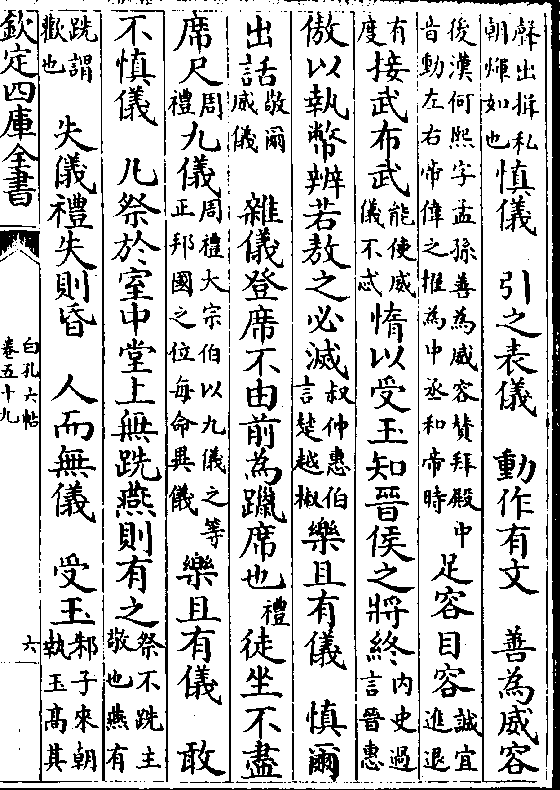 聲出揖私
朝煇如也
慎儀　引之表儀　動作有文　善為威容
後漢何熙字孟孫善為威容賛拜殿中
音動左右帝偉之推為中丞和帝時
足容目容
誠宜
進退
有
度
接武布武
能使威
儀不忒
惰以受玉知晉侯之將終
内史過
言晉惠
傲以執幣辨若敖之必滅
叔仲惠伯
言楚越椒
樂且有儀　慎爾
出話
敬爾
威儀
雜儀登席不由前為躐席也
禮
徒坐不盡
席尺
周
禮
九儀
周禮大宗伯以九儀之等
正邦國之位每命異儀
樂且有儀　敢
不慎儀　凡祭於室中堂上無跣燕則有之
祭不跣主
敬也燕有
跣謂
歡也
失儀禮失則昏　人而無儀　受玉
邾子來朝
執玉高其
欽定四庫全書
白孔六帖
卷五十九
六